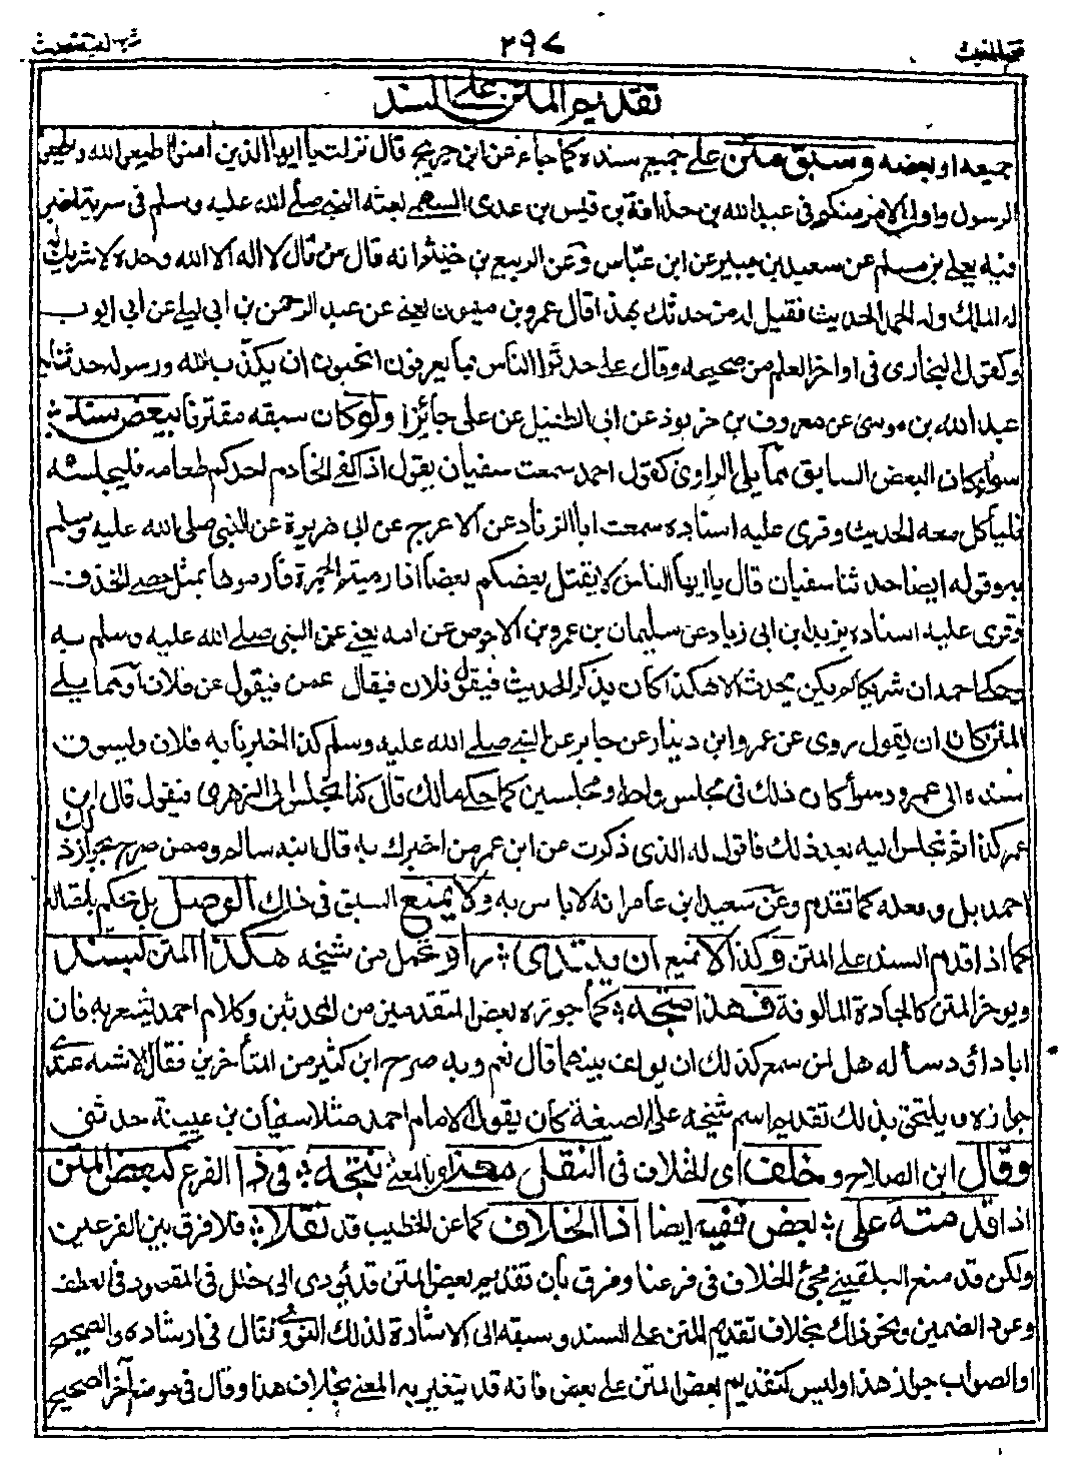 فتح المغيث ٢٩٧ شرح الفية الحديث
تقديم المتن على السند
جميعه او بعضه وسبق متن على جميع سنده كما جاء عن ابن جريج قال نزلت يا ايها الذين امنوا اطيعوا الله واطيعوا
الرسول واولى الامر منكم فى عبد الله بن حذافة بن قيس بن عدى السهمى بعثه النبى صلے الله عليه وسلم فى سرية اخبر
نيه يعلے بن مسلم عن سعيد بن جبير عن ابن عباس وعن الربيع بن خيثم انه قال من قال لا اله الا الله وحده لا شريك له
له الملك وله الحمد الحديث فقيل له من حدثك بهذا قال عمرو بن ميمون يعنے عن عبد الرحمن بن ابى ليلے عن ابى ايوب
وكقول البخارى فى اواخر العلم من صحيحه وقال علے حدثوا الناس بما يعرفون اتحبون ان يكذب الله ورسوله حدثنا به
عبد الله بن موسى عن معروف بن خربوذ عن ابى الطفيل عن على جائزا ولو كان سبقه مقترنا ببعض سند ؛
سواء كان البعض السابق مما يلى الراوى كقول احمد سمعت سفيان يقول اذا كفى الخادم احدكم طعامه فليجلسه
فليأكل معه الحديث وقرى عليه اسناده سمعت ابا الزناد عن الاعرج عن ابى هريرة عن النبى صلى الله عليه وسلم
به وقوله ايضا حدثنا سفيان قال يا ايها الناس لا يقتل بعضكم بعضا اذا رميتم الجمرة فارموها بمثل حصے الخذف
وقرى عليه اسناده يزيد ابن ابى زياد عن سليمان بن عمرو بن الاحوص عن امه يعنے عن النبى صلے الله عليه وسلم به
وحكے احمد ان شريكا لم يكن يحدث الا هكذا كان يذكر الحديث فيقول فلان فيقال عمن فيقول عن فلان او مما يلے
المتن كان ان يقول روى عن عمرو ابن دينار عن جابر عن النبے صلے الله عليه وسلم كذا اخبرنا به فلان ويسوق
سنده الى عمرو وسواء كان ذلك فى مجلس واحد او مجلسين كما حكے مالك قال كنا نجلس الى الزهرى فيقول قال ابن
عمر كذا ثم نجلس اليه بعد ذلك فاقول له الذى ذكرت عن ابن عمر من اخبرك به قال ابنه سالم وممن صرح بجواز ذلك
احمد بل وفعله كما تقدم وعن سعيد ابن عامر انه لا باس به ولا يمنع السبق فى ذلك الوصل بل يحكم باتصاله
كما اذا قدم السند على المتن وكذا لا يمنع ان يبتدى ؛ راو تحمل من شيخه هكذا المتن بسند
ويوخر المتن كالجادة المالوفة فهذا متجه ؛ كما جوزه بعض المتقدمين من المحدثين وكلام احمد يشعر به فان
ابا داؤد سأله هل لمن سمع كذلك ان يولف بينهما قال نعم وبه صرح ابن كثير من المتأخرين فقال الاشبه عندى
جوازه ويلتحق بذلك تقديم اسم شيخه على الصيغة كان يقول الامام احمد مثلا سفيان بن عيينة حدثنى
وقال ابن الصلاح وخلف اى الخلاف فى النقل معنى او بالمعنے يتجه ؛ فى ذا الفرع كبعض المتن
اذا قدمته على ؛ بعض ففيه ايضا ذا الخلاف كما عن الخطيب قد نقلا ؛ فلا فرق بين الفرعين
ولكن قد منع البلقينى مجئ الخلاف فى فرعنا وفرق بان تقديم بعض المتن قد يؤدى الى خلل فى المقصود فى العطف
وعود الضمير ونحو ذلك بخلاف تقديم المتن على السند وسبقه الى الاشارة لذلك النووى فقال فى ارشاده والصحيح
او الصواب جواز هذا وليس كتقديم بعض المتن على بعض فانه قد يتغير به المعنے بخلاف هذا وقال فى موضع آخر الصحيح